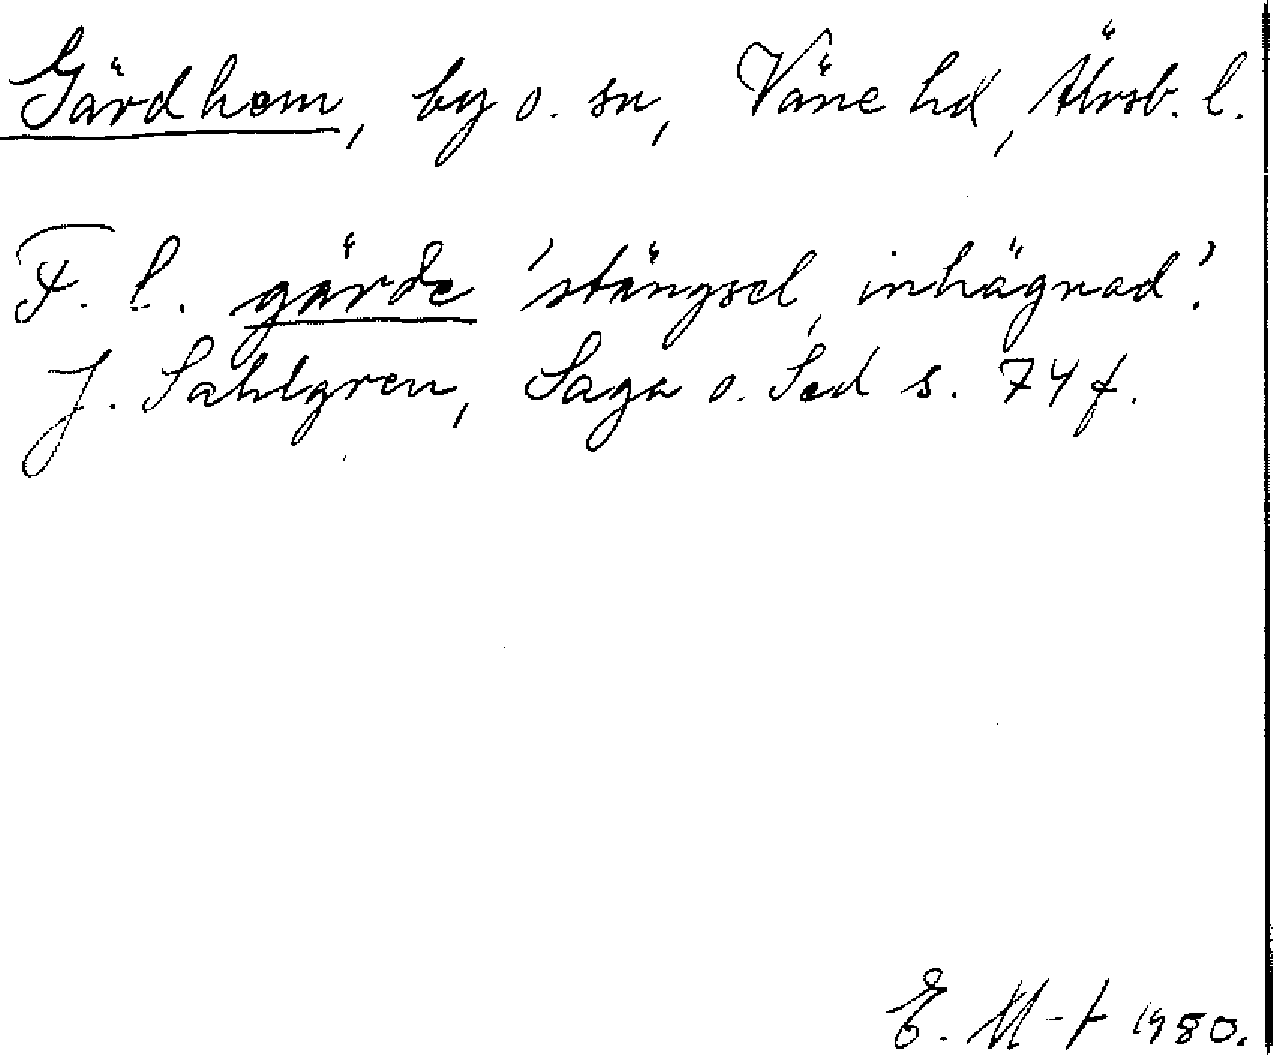 Gärdhem, by o. sn, Väne hd, Älvsb. l.
F. l. gärde 'stängsel, inhägnad'.
J. Sahlgren, Saga o. Sed s. 74 f.
E. M-t 1980.